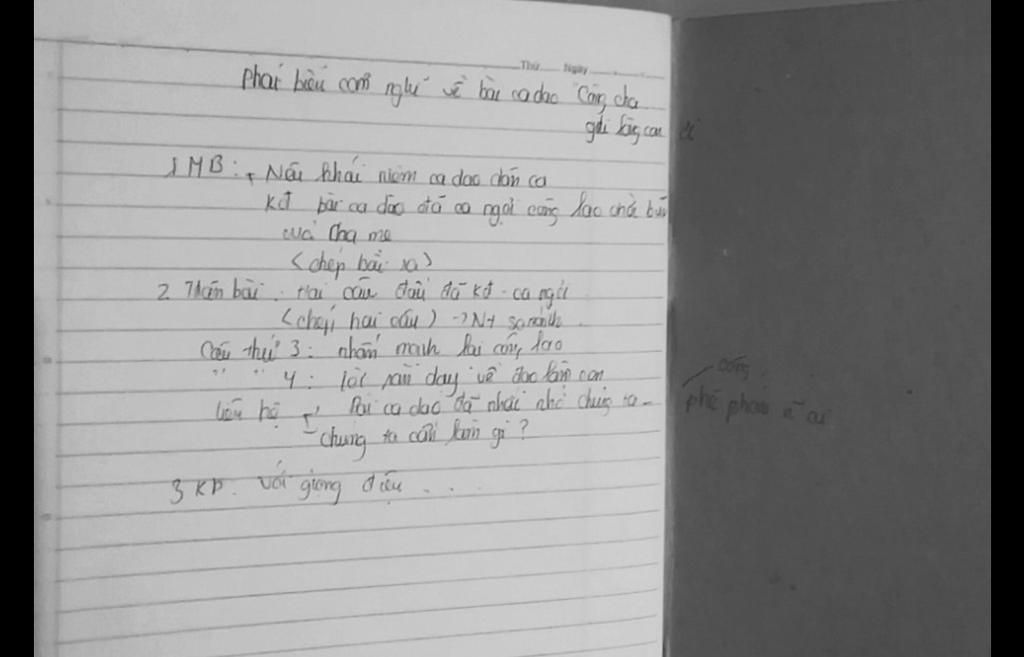 Thứ Ngày
Phát biểu cảm nghĩ về bài ca dao "Công cha
ghi lòng con ơi
1 MB: + Nêu khái niệm ca dao dân ca
KĐ bài ca dao đã ca ngợi công lao
của cha mẹ
<chép bài ra>
2. Thân bài: Hai câu đầu đã kđ - ca ngợi
<chép hai câu> -> Nt so sánh
Câu thứ 3: nhấn mạnh lại công lao
" " 4: lời răn dạy về đạo làm con
liên hệ + Bài ca dao đã nhắc nhở chúng ta -
- chúng ta cần làm gì?
3 KB. Với giọng điệu ...
công
phê phán